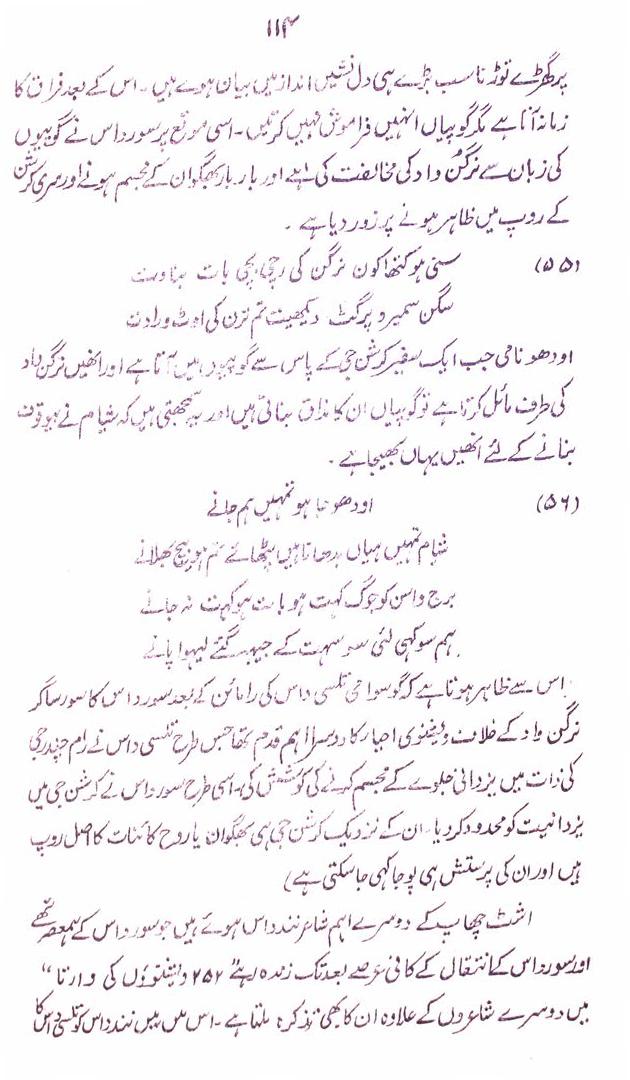 ۱۱۴
پر گھڑے توڑنا سب بڑے ہی دل نشیں انداز میں بیان ہوے ہیں ۔ اس کے بعد فراق کا
زمانہ آتا ہے مگر گوپیاں انہیں فراموش نہیں کرتیں ۔ اسی موقع پر سورداس نے گوپیوں
کی زبان سے نرگن واد کی مخالفت کی ہے اور بار بار بھگوان کے مجسم ہونے اور سری کرشن
کے روپ میں ظاہر ہونے پر زور دیا ہے ۔
(۵۵) سنی ہو کتھا کون نرگن کی رچی پچی بات بناوت
سگن سمیرو پرگٹ دیکھیت تم ترن کی اوٹ دراوت
اودھو نامی جب ایک سفیر کرشن جی کے پاس سے گوپیوں میں آتا ہے اور انھیں نرگن واد
کی طرف مائل کرتا ہے تو گوپیاں ان کا مذاق بناتی ہیں اور یہ سمجھتی ہیں کہ شیام نے بیوقوف
بنانے کے لئے انھیں یہاں بھیجا ہے ۔
(۵۶) اودھو جا ہو تمہیں ہم جانے
شیام تمہیں ہیاں پٹھائے تم ہو بیچ بھلانے
برج داسن کو جوگ کہت ہو بات ہو کہت نہ جانے
ہم سو کہی لئی سو سہت کے جیہہ گئے لیہو اپانے
اس سے ظاہر ہوتا ہے کہ گوسوامی تلسی داس کی رامائن کے بعد سورداس کا سور ساگر
نرگن واد کے خلاف ویشنوی احیار کا دوسرا اہم قدم تھا جس طرح تلسی داس نے رام چندر جی
کی ذات میں یزدانی جلوے کے مجسم کرنے کی کوشش کی ۔ اسی طرح سورداس نے کرشن جی میں
یزدانیت کو محدود کر دیا ۔ ان کے نزدیک کرشن جی ہی بھگوان یا روح کائنات کا اصل روپ
ہیں اور ان کی پرستش ہی پوجا کہی جا سکتی ہے )
اشٹ چھاپ کے دوسرے اہم شاعر نند داس ہوئے ہیں جو سورداس کے ہمعصر تھے
اور سورداس کے انتقال کے کافی عرصے بعد تک زندہ رہے " ۲۵۲ ویشنوؤں کی وارتا "
میں دوسرے شاعروں کے علاوہ ان کا بھی تذکرہ ملتا ہے ۔ اس میں نند داس کو تلسی داس کا